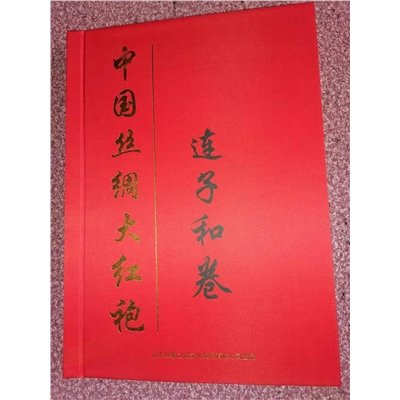 中国丝绸大红袍
连子和卷